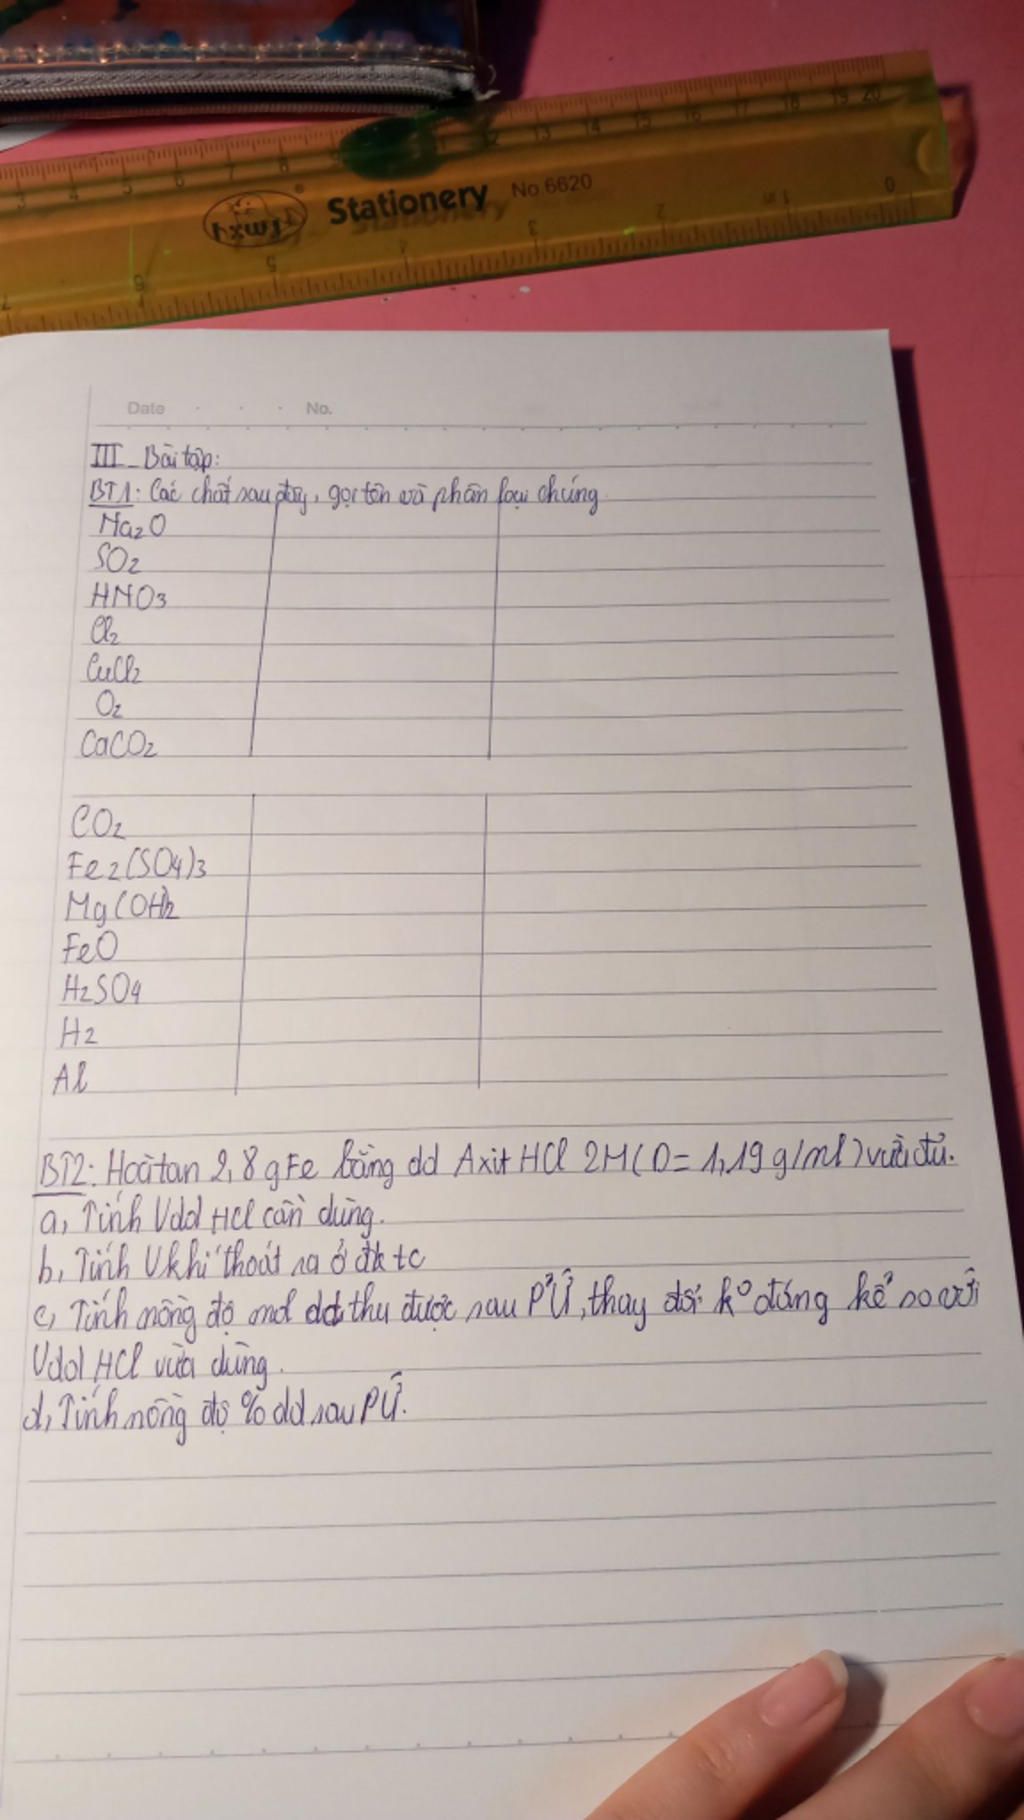 Stationery No 6620
Date No.
III_ Bài tập:
BT1: Các chất sau đây, gọi tên và phân loại chúng.
Na2O
SO2
HNO3
Cl2
CuCl2
O2
CaCO2
CO2
Fe2(SO4)3
Mg(OH)2
FeO
H2SO4
H2
Al
BT2: Hoà tan 2,8g Fe bằng dd Axit HCl 2M (D = 1,19 g/ml) vừa đủ.
a, Tính Vdd HCl cần dùng.
b, Tính Vkhí thoát ra ở đktc
c, Tính nồng độ mol dd thu được sau PỨ, thay đổi k° đáng kể so với
Vdd HCl vừa dùng.
d, Tính nồng độ % dd sau PỨ.